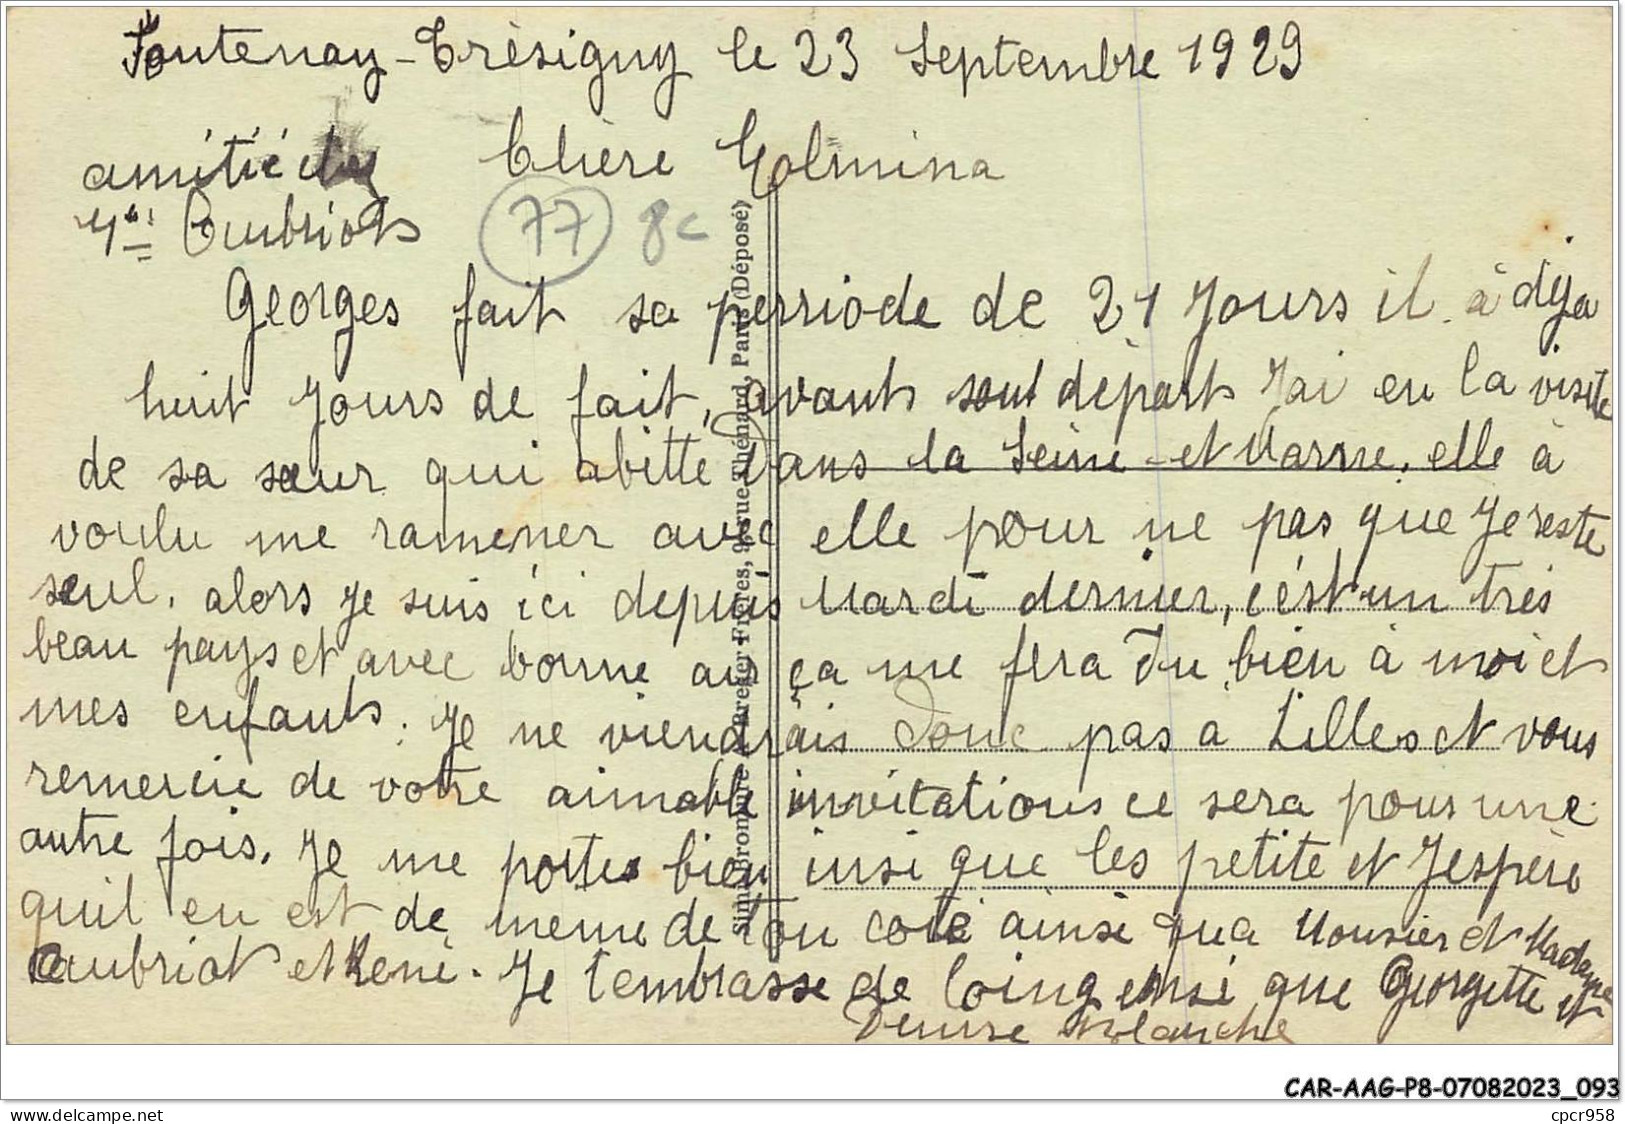 Fontenay-Trèsigny le 23 Septembre 1929
amitié
Chère Yolmina
77 8c
Georges fait sa perriode de 21 Jours il à déja
huit Jours de fait, avants sont dèparts Jai eu la visite
de sa sœur qui abitte dans la Seine-et Marne. elle à
voulu me ramener avec elle pour ne pas que Je reste
seul. alors Je suis ici depuis Mardi dernier, c'ést un très
beau pays et avec bonne air ça me fera du bien à moi et
mes enfants. Je ne viendrais donc pas a Lilles et vous
remercie de votre aimable invitations ce sera pour une
autre fois. Je me portes bien insi que les petite et Jespère
quil en est de meme de ton coté ainsi que Mousier et Madame
Aubriot et René. Je tembrasse de loing ensi que Georgette et
Denise Blanche
Simi-Bronzure Breger Frères, 9, rue Thénard, Paris (Déposé)
CAR-AAG-P8-07082023_093
www.delcampe.net
cpcr958